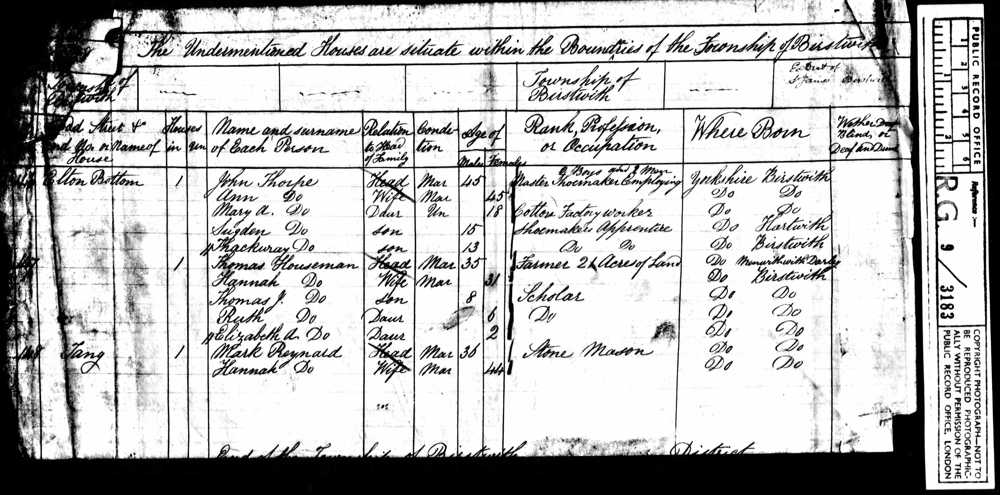 The Undermentioned Houses are situate within the Boundries of the Township of Birstwith
Township of Birstwith
Township of Birstwith
St James Birstwith
Road Street &c and No or Name of House
Houses in Un
Name and surname of Each Person
Relation to Head of Family
Condetion
Age of
Males Females
Rank, Profession, or Occupation
Where Born
Wether Deaf Blind, or Deaf and Dumb
2 Boys and 2 Men
Elton Bottom 1 John Thorpe Head Mar 45 Master Shoemaker Employing Yorkshire Birstwith
Ann Do Wife Mar 45 Do Do
Mary A. Do Daur Un 18 Cotton Factory worker Do Do
Sugden Do son 15 Shoemakers Apprentice Do Hartwith
Thackuray Do son 13 Do Do Do Birstwith
1 Thomas Houseman Head Mar 35 Farmer 21 Acres of Land Do Menwithwith Darley
Hannah Do Wife Mar 31 Do Birstwith
Thomas J. Do son 8 Scholar Do Do
Ruth Do Daur 6 Do Do Do
Elizabeth A. Do Daur 2 Do Do
Tang 1 Mark Reynard Head Mar 36 Stone Mason Do Do
Hannah Do Wife Mar 44 Do Do
End of the Township of Birstwith District
PUBLIC RECORD OFFICE
1 2 3 4 5 6
Reference:-
RG 9 / 3183
COPYRIGHT PHOTOGRAPH—NOT TO
BE REPRODUCED PHOTOGRAPHIC-
ALLY WITHOUT PERMISSION OF THE
PUBLIC RECORD OFFICE, LONDON